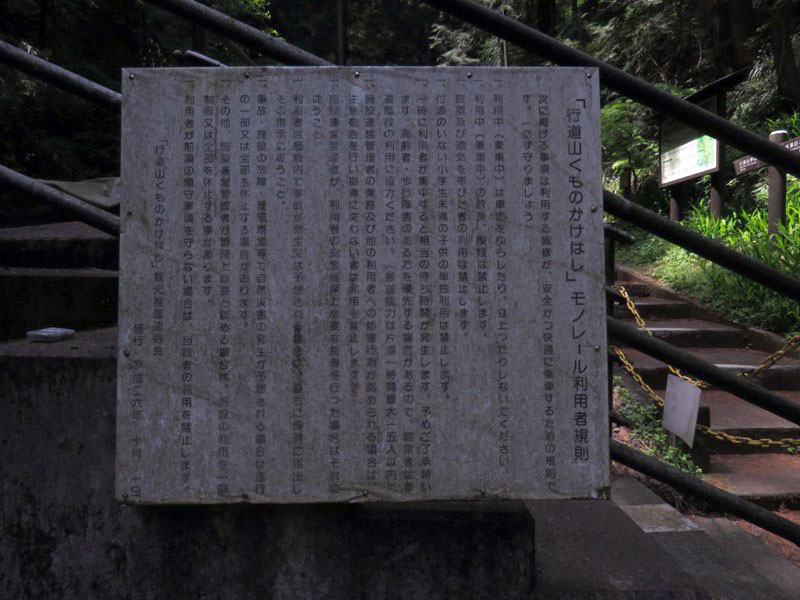 「行道山くものかけはし」モノレール利用者規則
次に掲げる事項は利用する皆様が、安全かつ快適に乗車するための規則で
す。（必ず守りましょう）
一 利用中（乗車中）は車両をゆらしたり、立上ったりしないでください。
一 利用中（乗車中）の飲食、喫煙は禁止します。
一 飲酒及び酒気を帯びた者の利用は禁止します。
一 付添のいない小学生未満の子供の単独利用は禁止します。
一 一時に利用者が集中すると相当の待ち時間が発生します。予めご了承願い
ます。高齢者・歩行障害のある方を優先する場合があるので、健常者は参
道階段の利用に協力ください。（輸送能力は片道一時間最大一五人以内）
一 施設運営管理者の業務及び他の利用者への妨害行為が認められる場合は、
注意勧告を行い指導に従わない者は利用を禁止します。
一 施設運営管理者が、利用者の安全確保上必要な指導を行った場合はそれに
従うこと。
一 利用者は施設内で事故が発生又は予想される場合は、場合に係員に届出し
その指示に従うこと。
一 事故、施設の故障、暴風雨雪等で自然災害の発生が予想される場合は運行
の一部又は全部を休止する場合があります。
一 その他、施設運営管理者が管理上必要と認める場合は、施設の利用を一部
制限又は全部を休止する事があります。
一 利用者が前項の順守事項を守らない場合は、当該者の利用を禁止します。
「行道山くものかけはし」観光推進連絡会
施行 平成二六年 十月 一日